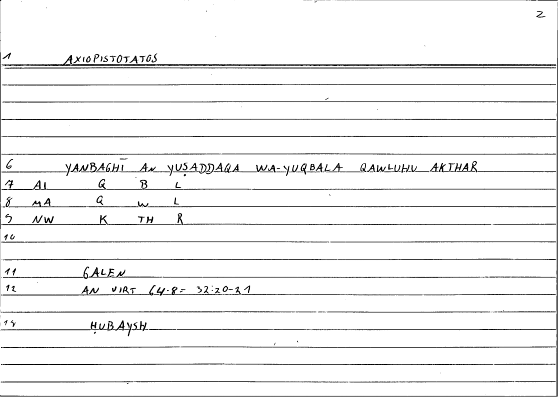 2
1 AXIOPISTOTATOS
6 YANBAGHĪ AN YUṢADDAQA WA-YUQBALA QAWLUHU AKTHAR
7 AI Q B L
8 MA Q W L
9 NW K TH R
10
11 GALEN
12 AN VIRT 64.8 = 32:20-21
14 ḤUBAYSH